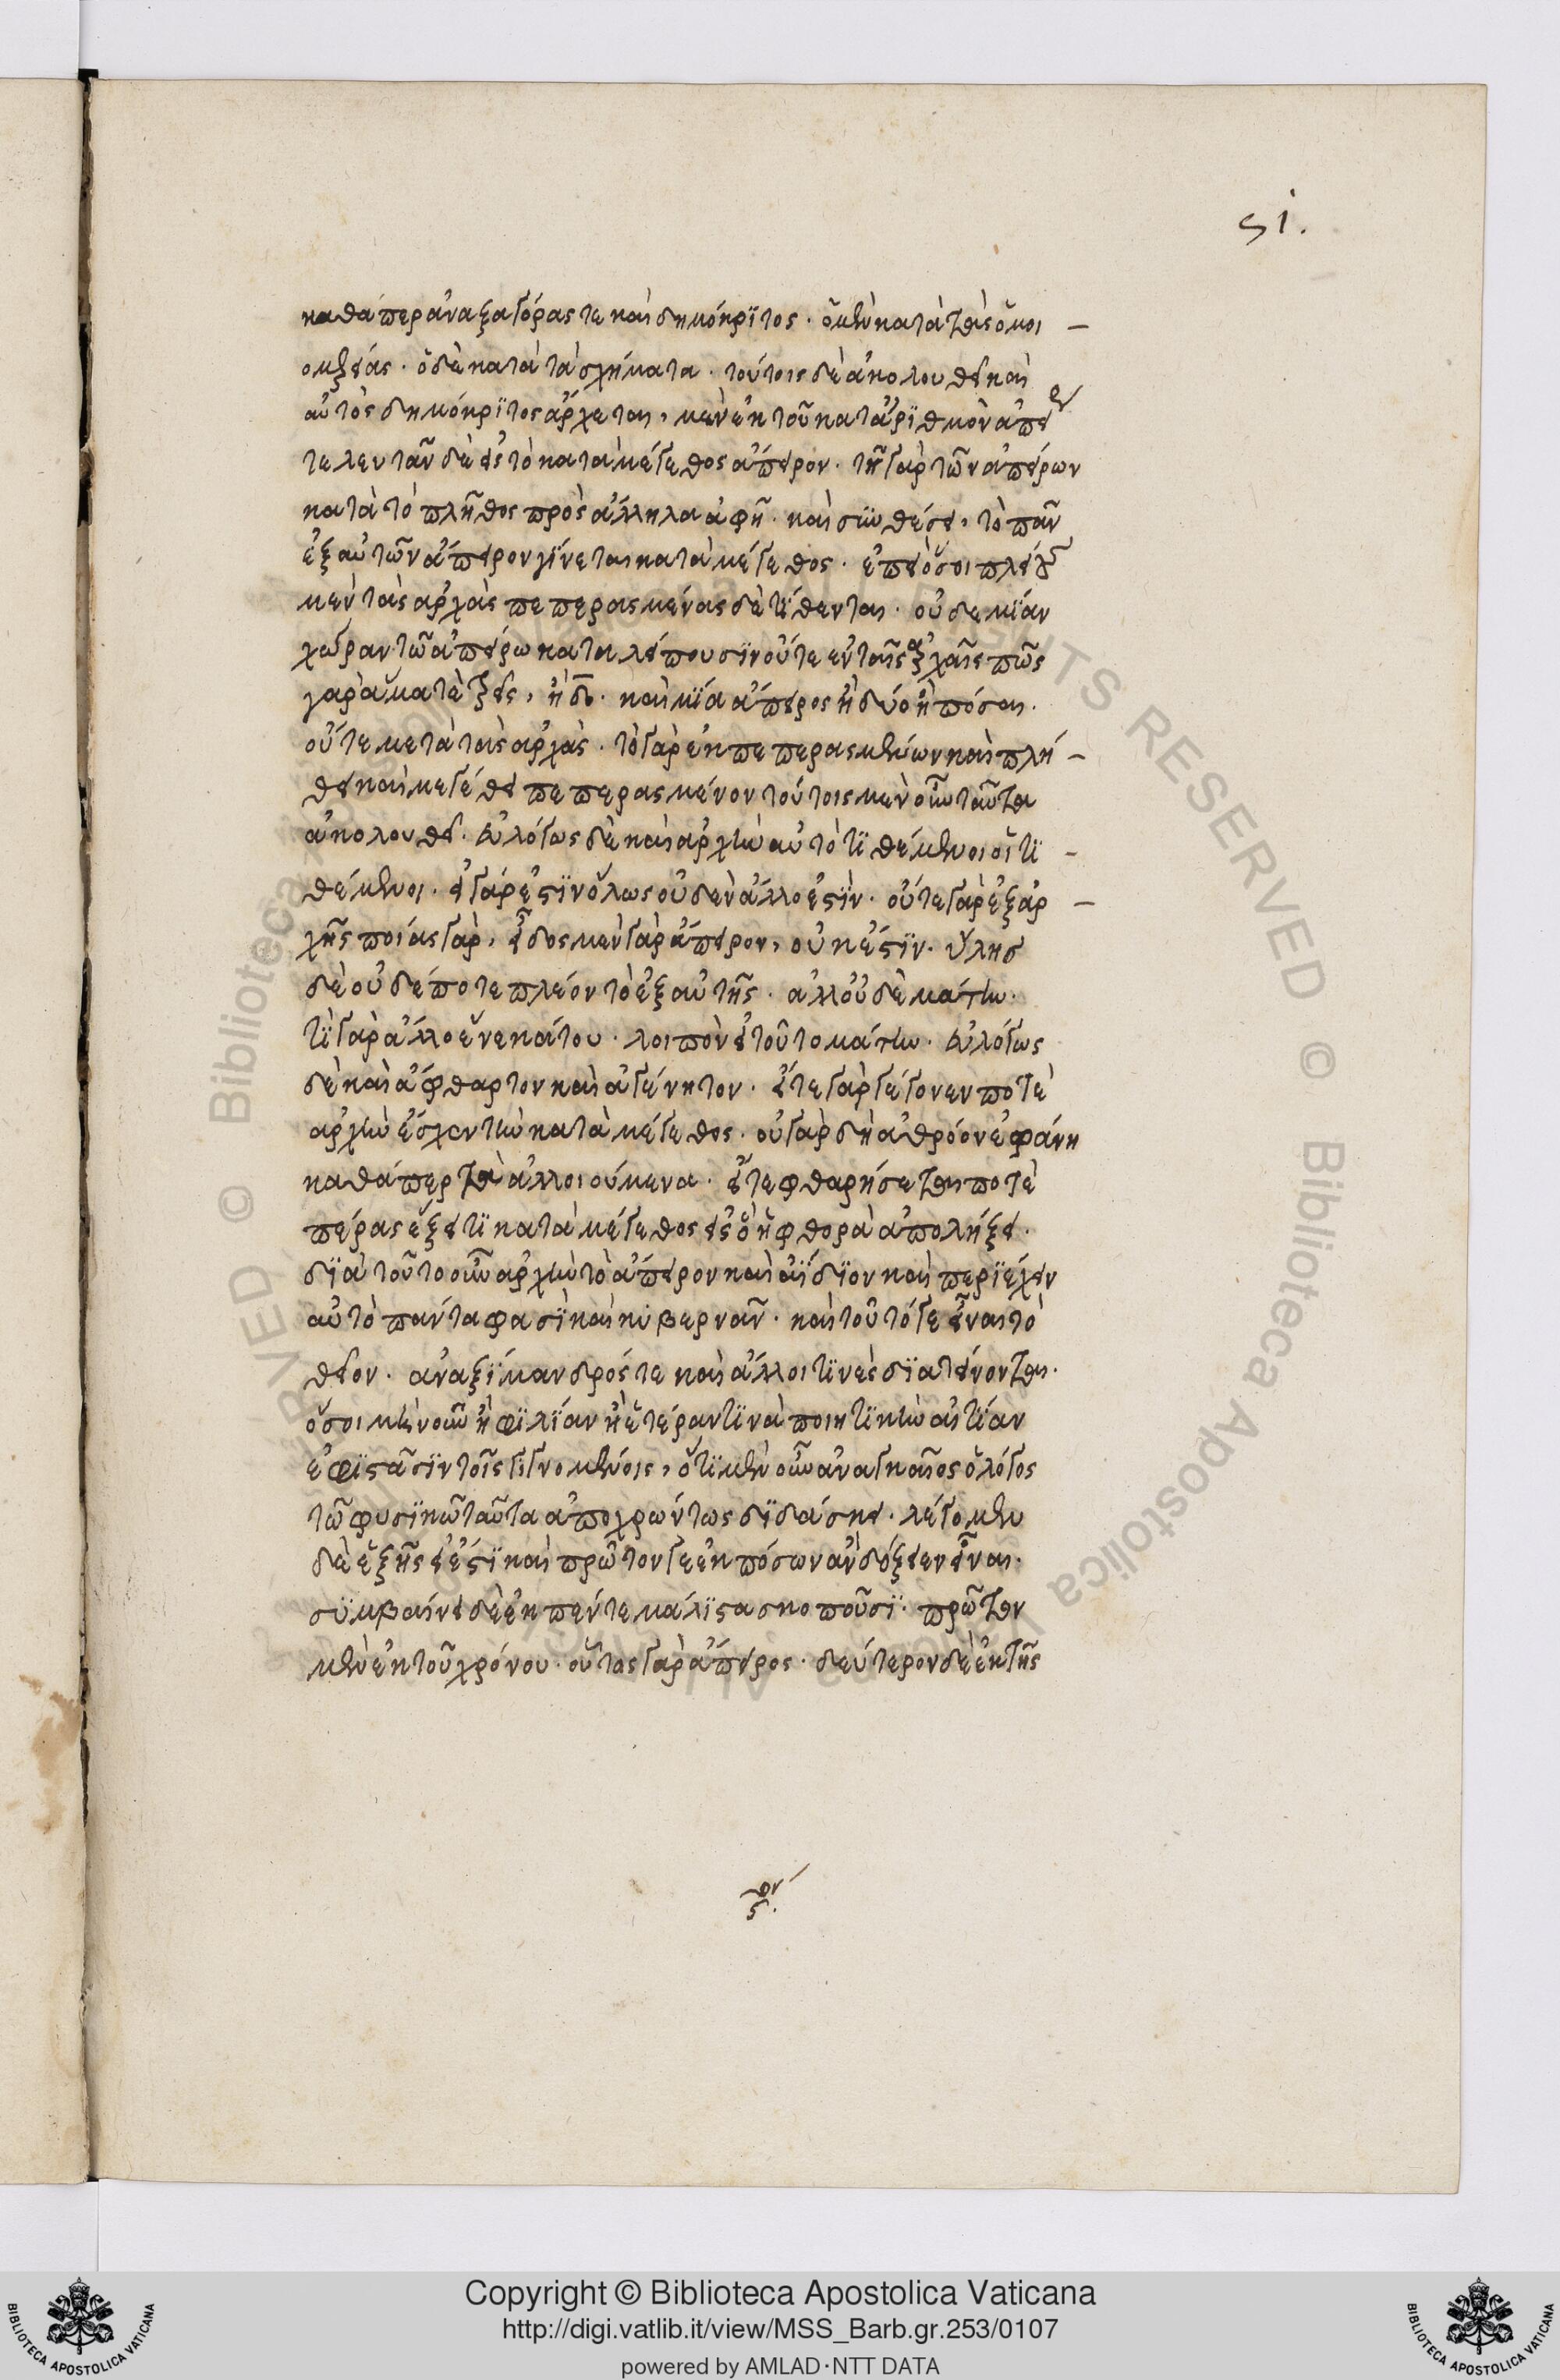 51.
καθάπερ ἀναξαγόρας τε καὶ δημόκριτος· ὁ μὲν κατὰ τὰς ὁμοι –
ομερείας· ὁ δὲ κατὰ τὰ σχήματα· τούτοις δὲ ἀκολουθεῖ καὶ
αὐτὸς δημόκρϊτος ἄρχεται, μὲν ἐκ τοῦ κατ' ἀρϊθμὸν ἀπείρου
τελευτᾶν δὲ εἰς τὸ κατὰ μέγεθος ἄπειρον· τῇ γὰρ τῶν ἀπείρων
κατὰ τὸ πλῆθος πρὸς ἄλληλα ἁφῇ· καὶ συνθέσει, τὸ πᾶν
ἐξ αὐτῶν ἄπειρον γίνεται κατὰ μέγεθος· ἐπεὶ ὅσοι πλείους
μὲν τὰς ἀρχὰς πεπερασμένας δὲ τϊθενται· οὐδεμϊάν
χώραν τῶ ἀπείρω καταλείπουσϊν οὔτε ἐν ταῖς ἀρχαῖς πῶς
γὰρ ἅμα τὲ τρεῖς, ἢ δ̄υο· καὶ μϊά ἄπειρος ἢ δύο ἢ πόσαι·
οὔτε μετὰ τὰς ἀρχάς· τὸ γὰρ ἐκ πεπερασμένων καὶ πλή –
θει καὶ μεγέθει πεπερασμένον τούτοις μὲν οὖν ταῦτα
ἀκολουθεῖ· εὐλόγως δὲ καὶ ἀρχὴν αὐτὸ τϊθέμενοι οἱ τϊ –
θέμενοι· εἰ γάρ ἐστϊν ὅλως οὐδὲν ἄλλο ἐστὶν· οὔτε γὰρ ἐξ ἀρ –
χῆς ποιάς γὰρ, εἶδος μὲν γὰρ ἄπειρον, οὐκ ἔστϊν· ὕλησ
δὲ οὐδέποτε πλέον τὸ ἐξ αὐτῆς· ἀλλ' οὐδὲ μάτην·
τϊ γὰρ ἄλλο ἕνεκά του· λοιπὸν εἰ τοῦτο μάτην· εὐλόγως
δὲ καὶ ἄφθαρτον καὶ ἀγένητον· εἴτε γὰρ γέγονεν ποτὲ
ἀρχὴν ἔσχεν τὴν κατὰ μέγεθος· οὐ γὰρ δὴ ἀθρόον ἐφάνη
καθάπερ τὰ ἀλλοιούμενα· εἴτε φθαρήσεται ποτὲ
πέρας ἕξει τϊ κατὰ μέγεθος εἰς ὃ ἡ φθορὰ ἀπολήξει·
δϊὰ τοῦτο οὖν ἀρχὴν τὸ ἄπειρον καὶ ἀΐδϊον καὶ περϊέχειν
αὐτὸ πάντα φασϊ καὶ κυβερνᾶν· καὶ τοῦτό γε εἶναι τὸ
θεῖον· ἀναξϊμανδρός τε καὶ ἄλλοι τϊνὲς δϊατείνονται·
ὅσοι μὲν οὖν ἢ φϊλϊάν ἢ ἑτέραν τϊνὰ ποιητϊκὴν αἰτϊάν
ἐφϊστᾶσϊν τοῖς γϊγνομένοις, ὅτϊ μὲν οὖν ἀναγκαῖος ὁ λόγος
τῶ φυσϊκῶ ταῦτα ἀποχρώντως δϊδάσκει· λέγομεν
δὲ ἑξῆς εἰ ἔστϊ καὶ πρῶτον γε ἐκ πόσων ἂν δόξειεν εἶναι·
συμβαίνει δὲ ἐκ πέντε μάλϊστα σκοποῦσϊ· πρῶτον
μὲν ἐκ τοῦ χρόνου· οὗτος γὰρ ἄπειρος· δεύτερον δὲ ἐκ τῆς
Copyright © Biblioteca Apostolica Vaticana
http://digi.vatlib.it/view/MSS_Barb.gr.253/0107
powered by AMLAD·NTT DATA